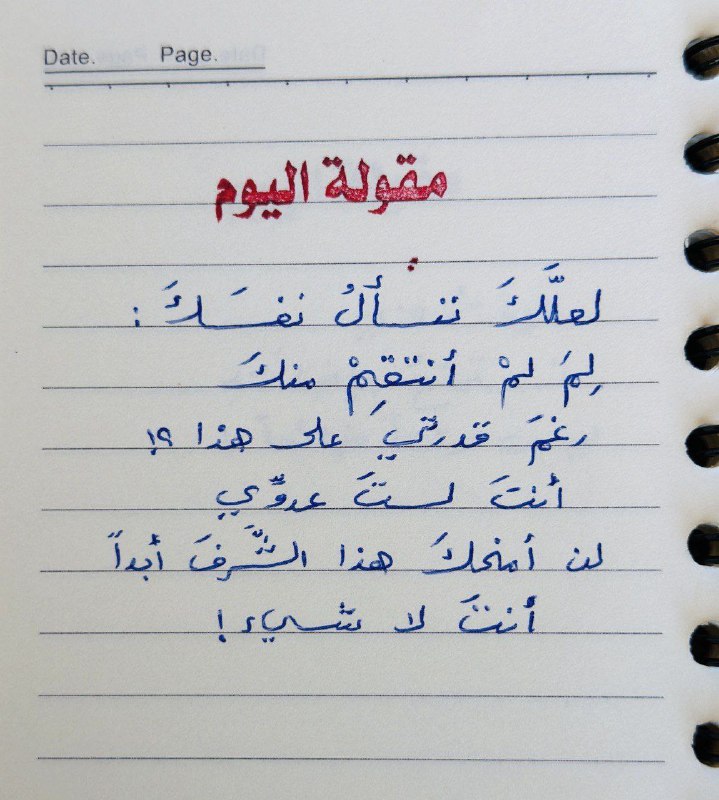 Date. Page.
مقولة اليوم
:
لعلَّكَ تسألُ نفسَكَ :
لِمَ لمْ أنتقِمْ منكَ
رغمَ قدرتي على هذا ؟!
أنتَ لستَ عدوِّي
لن أمنحكَ هذا الشَّرفَ أبداً
أنتَ لا شيء !